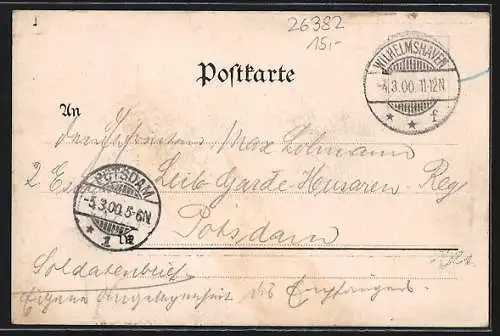 26382
15,-
WILHELMSHAVEN
-4.3.00.11-12N
* * f
Postkarte
An
Max Lohmann
2 Leib-Garde-Husaren-Reg
Potsdam
POTSDAM
-5.3.00.5-6N
* 1
Soldatenbrief
Eigene Angelegenheit des Empfängers